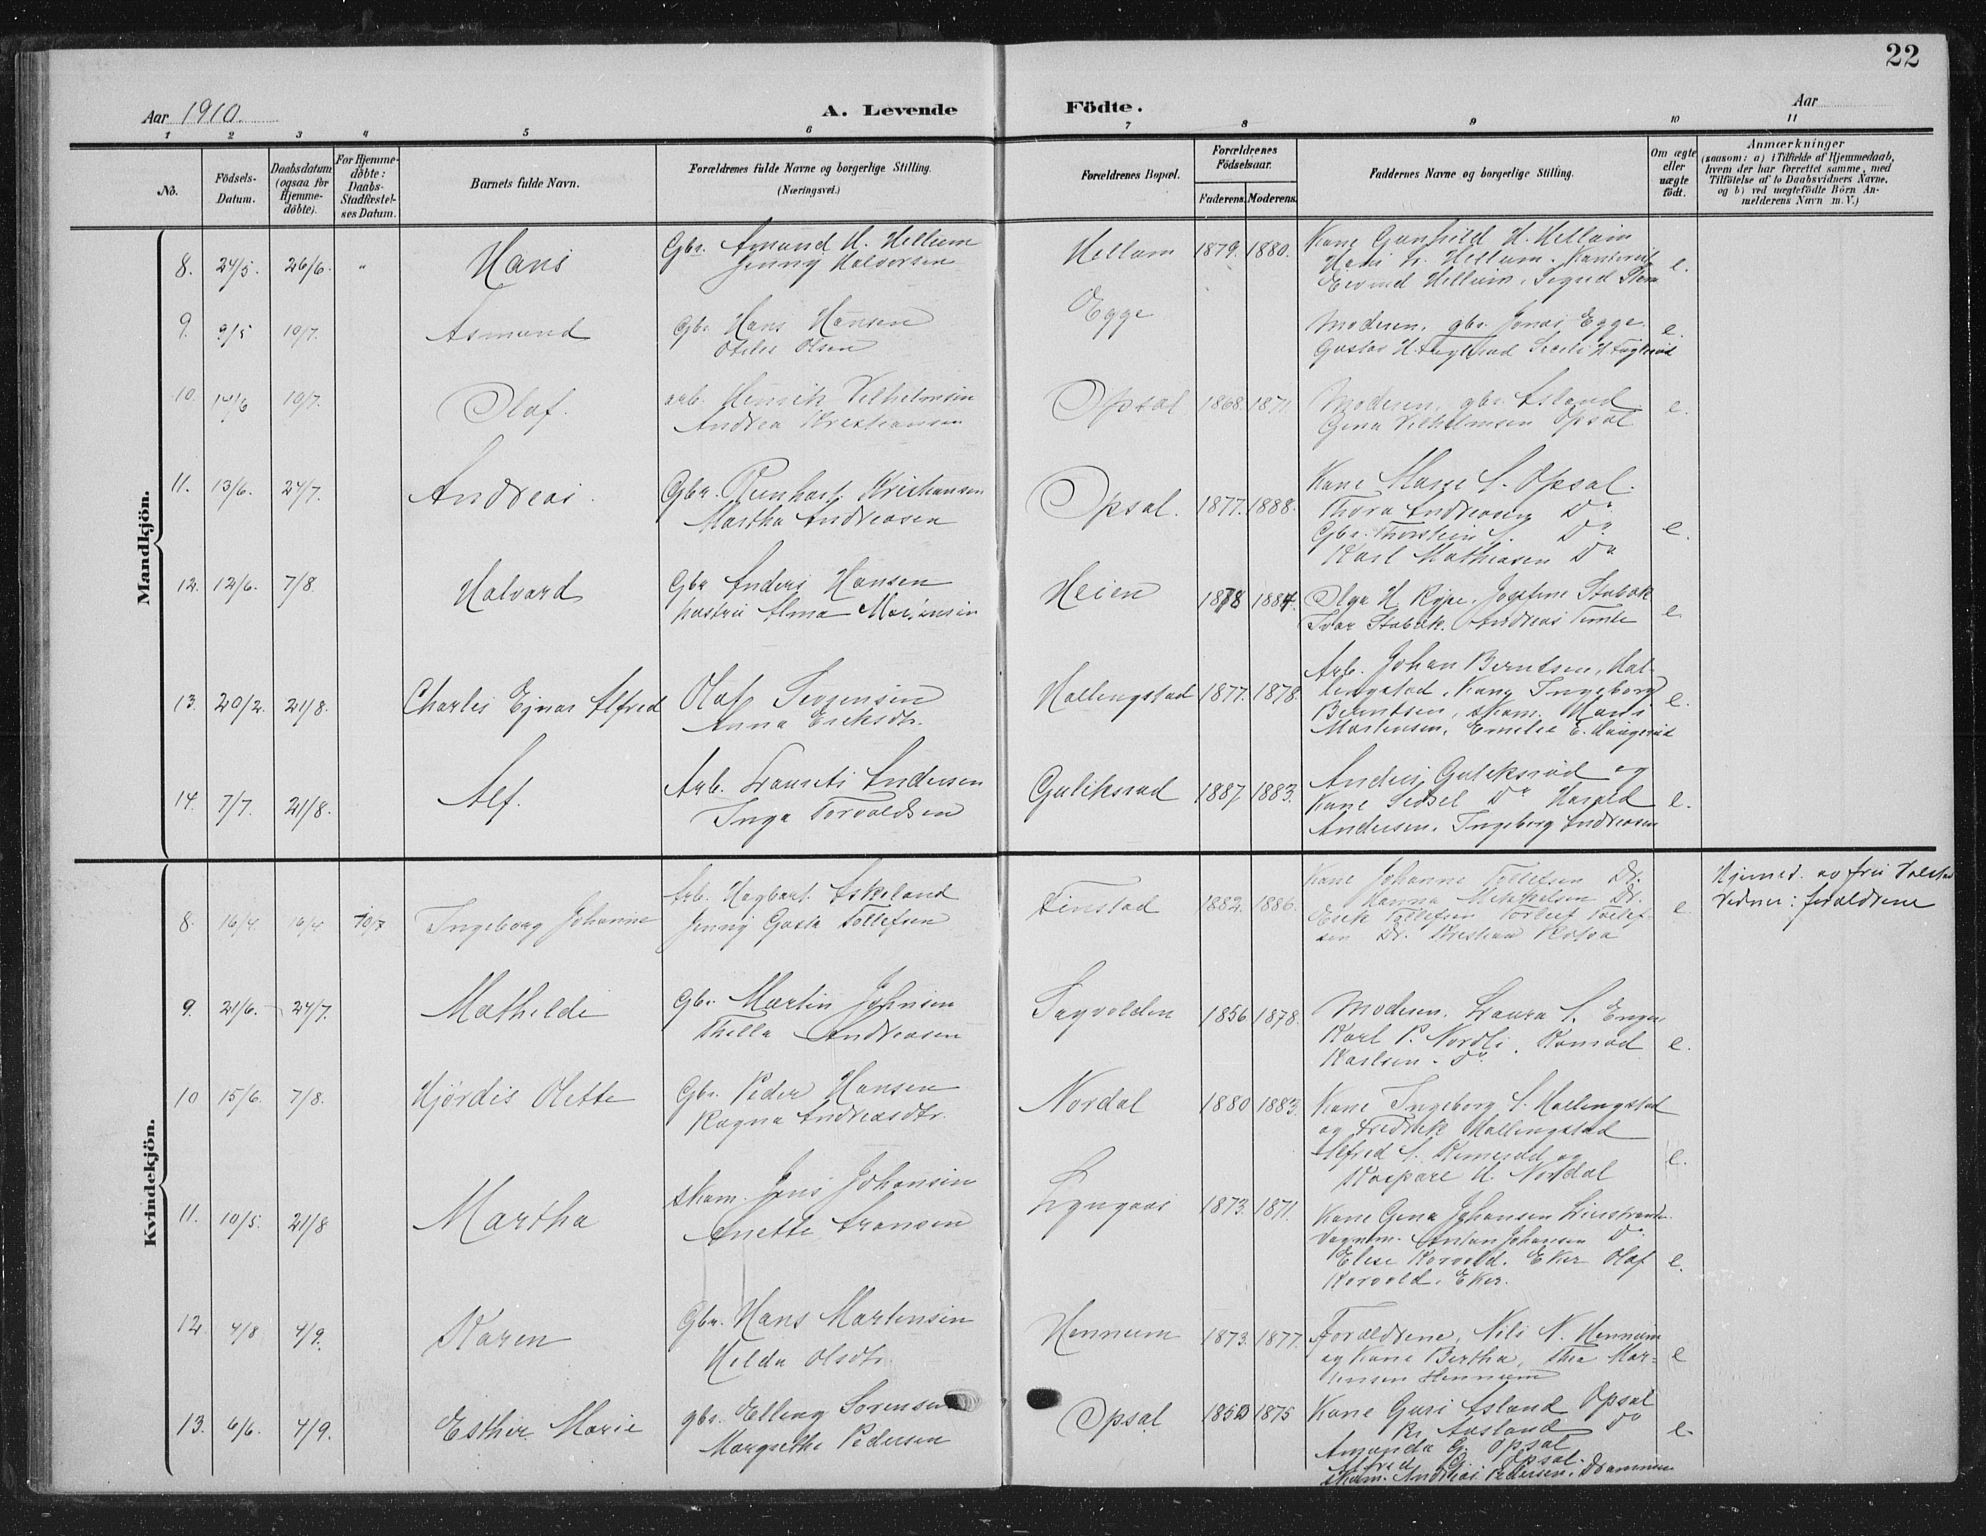 22
Aar 1910.
A. Levende Födte.
Aar
1 2 3 4 5 6 7 8 9 10 11
No.
Födsels-Datum.
Daabsdatum (ogsaa for Hjemme-döbte).
For Hjemme-döbte: Daabs-Stadfæstel-ses Datum.
Barnets fulde Navn.
Forældrenes fulde Navne og borgerlige Stilling. (Næringsvei.)
Forældrenes Bopæl.
Forældrenes Födselsaar.
Faderens. Moderens.
Faddernes Navne og borgerlige Stilling.
Om ægte eller uægte födt.
Anmærkninger
(saasom: a) i Tilfælde af Hjemmedaab,
hvem der har forrettet samme, med
Tilföielse af to Daabsvidners Navne,
og b) ved uægtefödte Börn An-
melderens Navn m. V.)
Mandkjön.
8. 24/5. 26/6. " Hans
Gbr. Amund H. Hellum
Jenny Halvorsen
Hellum 1879. 1880.
Kone Gunhild H. Hellum
Hans Hellum.
Eivind Hellum. Sigrid
e.
9. 9/5 10/7. Asmund
Gbr. Hans Hansen
Olsen
Egge
Moderen, gbr. Jonas Egge.
Gustav H.
e.
10. 14/6 10/7. Olaf.
arb. Henrik Vilhelmsen
Andrea Kristiansen
Opsal 1868. 1871
Moderen, gbr. Asland
Gina Vilhelmsen Opsal
e.
11. 13/6. 24/7. Andreas.
Gbr. Reinhart Kristiansen
Martha Andreasen
Opsal. 1877. 1888.
Kone Maren S. Opsal.
Thora Andreasen Do
Gbr. Thorstein S. Do
Karl Mathiasen Do
e.
12. 12/6. 7/8. Halvard
Gbr Anders Hansen
hustru Alma
Heien 1878 1884.
Olga H. Rype. Josefine Stabæk
Ivar Stabæk. Andreas Temte
e.
13. 20/2. 21/8. Charles Ejnar Alfred
Olaf
Anna Eriksdtr.
Hallingstad 1877. 1878.
Arb. Johan Berntsen, Hal-
lingstad, Kone Ingeborg
Berntsen, skom. Hans
Martensen, Emelie E.
e.
14. 7/7. 21/8. Alf.
Arb. Laurits Andersen
Inga Torvaldsen
Guliksrud 1887 1883.
Anders Guliksrød og
Kone Sidsel Do Harald
Andersen. Ingeborg Andreasen
e.
Kvindekjön.
8. 16/4. 16/4 10/7 Ingeborg Johanne
Arb. Hagbart Askeland
Jenny Tollefsen
Finstad 1882. 1886.
Kone Johanne Tollefsen Do.
Hanna Mikkelsen Do.
Erik Tollefsen Torleif Tollef-
sen Do. Kristian
e.
Hjemmed. av fru
Vidner: forældrene
9. 21/6. 24/7. Mathilde
Gbr. Martin Johnsen
Thilla Andreasen
Sagvolden 1856 1878.
Moderen. Laura S. Enger
Karl P. Nordli. Konrad
Karlsen. Do
e.
10 15/6. 7/8. Hjørdis Olette
Gbr. Peder Hansen
Ragna Andreasdtr.
Nordal 1880 1883.
Kone Ingeborg S. Hallingstad
og Fredrik Hallingstad
Alfred S. og
Kaspara H. Nordal
e.
11. 10/5. 21/8 Martha
skom. Jens Johansen
Anette Fransen
Lyngaas 1873. 1871.
Kone Gina Johansen
Vognm. Anton Johansen Do
Elise Korvold. Eker Olaf
Korvold. Eker.
e.
12. 4/8 4/9. Karen
Gbr. Hans Martensen
Helda Olsdtr.
Hennum 1873. 1877.
Forældrene, Nils N. Hennum
og Kone Bertha, Thea Mar-
tensen Hennum
e
13. 6/6. 4/9. Esther Marie
gbr. Elling Sorensen
Margrethe Pedersen
Opsal. 1875
Kone Guri Asland Opsal
Kr. Aasland Do
Amanda G. Opsal
Alfred G. Opsal.
skom. Andreas Pedersen, Drammen
e.